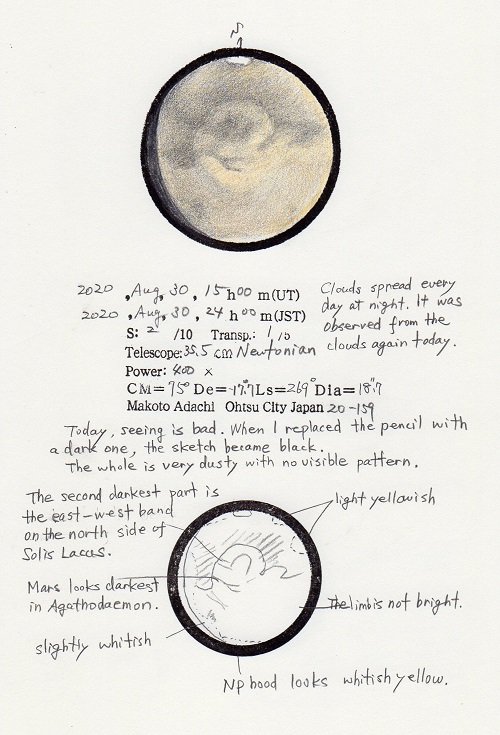 S
2020 , Aug, 30 , 15 h 00 m (UT)
2020 , Aug, 30 , 24 h 00 m (JST)
S: 2 /10 Transp.: 1 /5
Telescope: 35.5 cm Newtonian
Power: 400 ×
CM= 75° De= -17.°7 Ls= 269° Dia= 18."7
Makoto Adachi Ohtsu City Japan 20-159
Clouds spread every
day at night. It was
observed from the
clouds again today.
Today, seeing is bad. When I replaced the pencil with
a dark one, the sketch became black.
The whole is very dusty with no visible pattern.
The second darkest part is
the east-west band
on the north side of
Solis Lacus.
light yellowish
Mars looks darkest
in Agathodaemon.
The limb is not bright.
slightly whitish
Np hood looks whitish yellow.